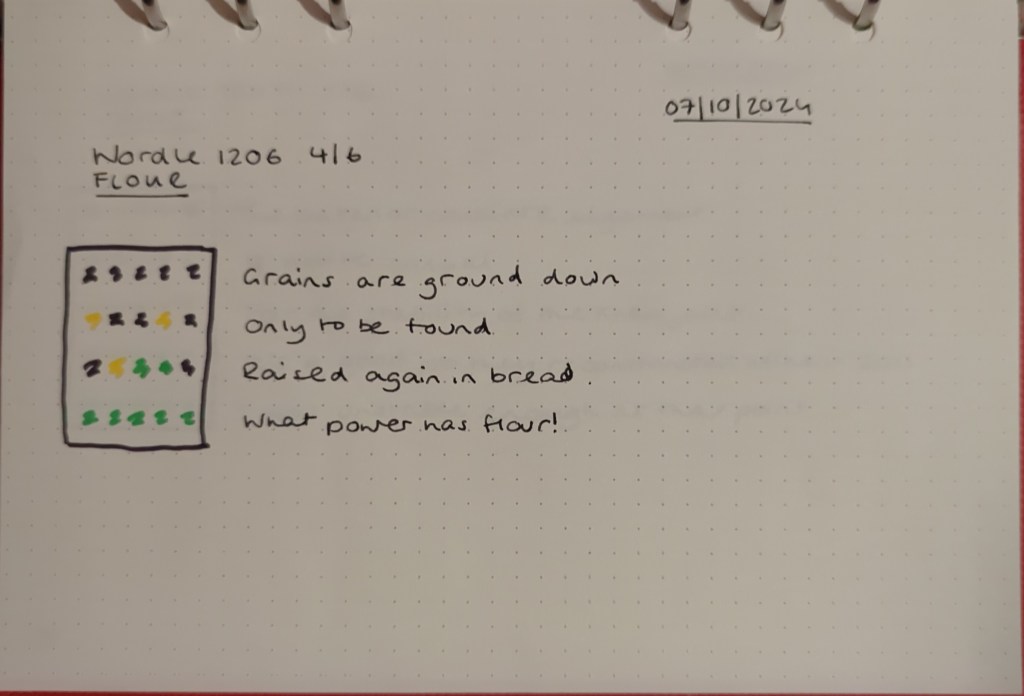 07/10/2024
Wordle 1206 4/6
Flour
Grains are ground down
Only to be found
Raised again in bread.
What power has flour!